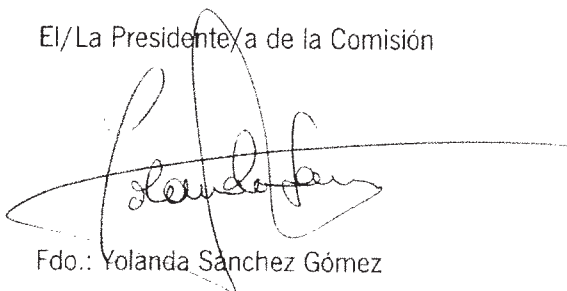 El/La Presidente/a de la Comisión
Yolanda San
Fdo.: Yolanda Sánchez Gómez